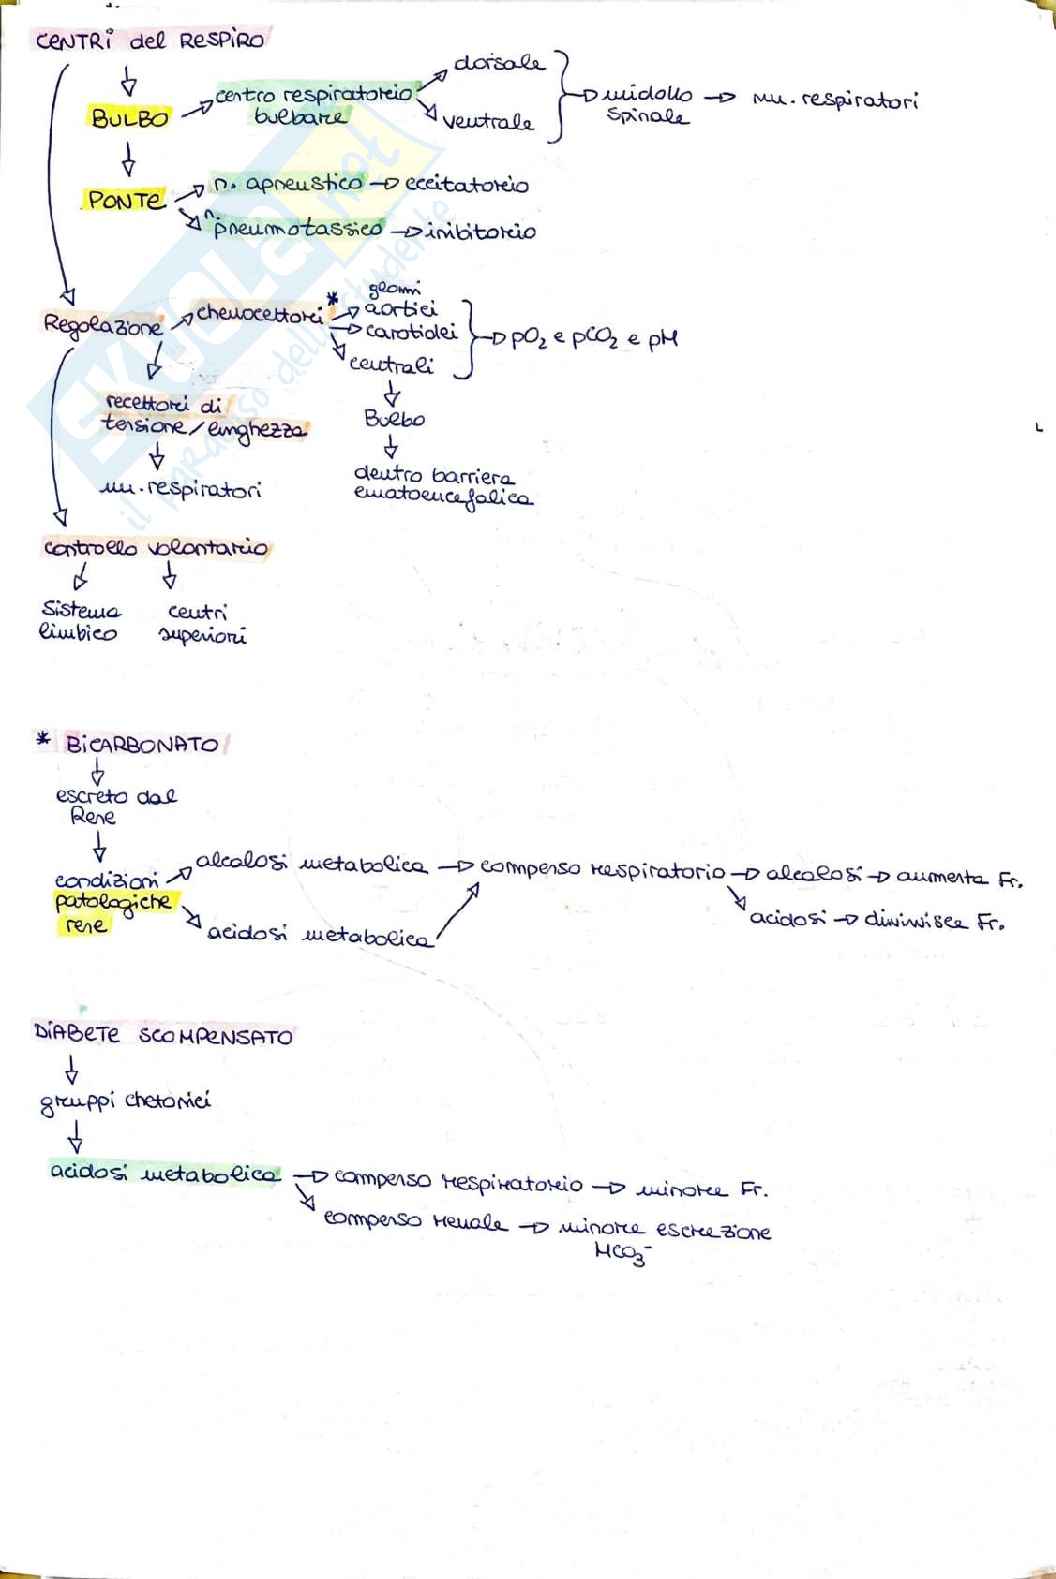 CENTRI del RESPIRO
BULBO → centro respiratorio bulbare → dorsale
ventrale
→ midollo spinale → mu. respiratori
PONTE → n. apneustico → eccitatorio
n. pneumotassico → inibitorio
Regolazione → chemocettori * → glomi aortici
→ carotidei
→ centrali
→ pO₂ e pCO₂ e pH
Bulbo
dentro barriera
ematoencefalica
recettori di
tensione/lunghezza
mu. respiratori
controllo volontario
Sistema limbico
centri superiori
* BiCARBONATO
escreto dal
Rene
condizioni
patologiche
rene
→ alcalosi metabolica → compenso respiratorio → alcalosi → aumenta Fr.
acidosi → diminisce Fr.
→ acidosi metabolica
DiABETE SCOMPENSATO
gruppi chetonici
acidosi metabolica → compenso respiratorio → minore Fr.
compenso renale → minore escrezione
HCO₃⁻
SKUOLA.net
il paradiso dello studente